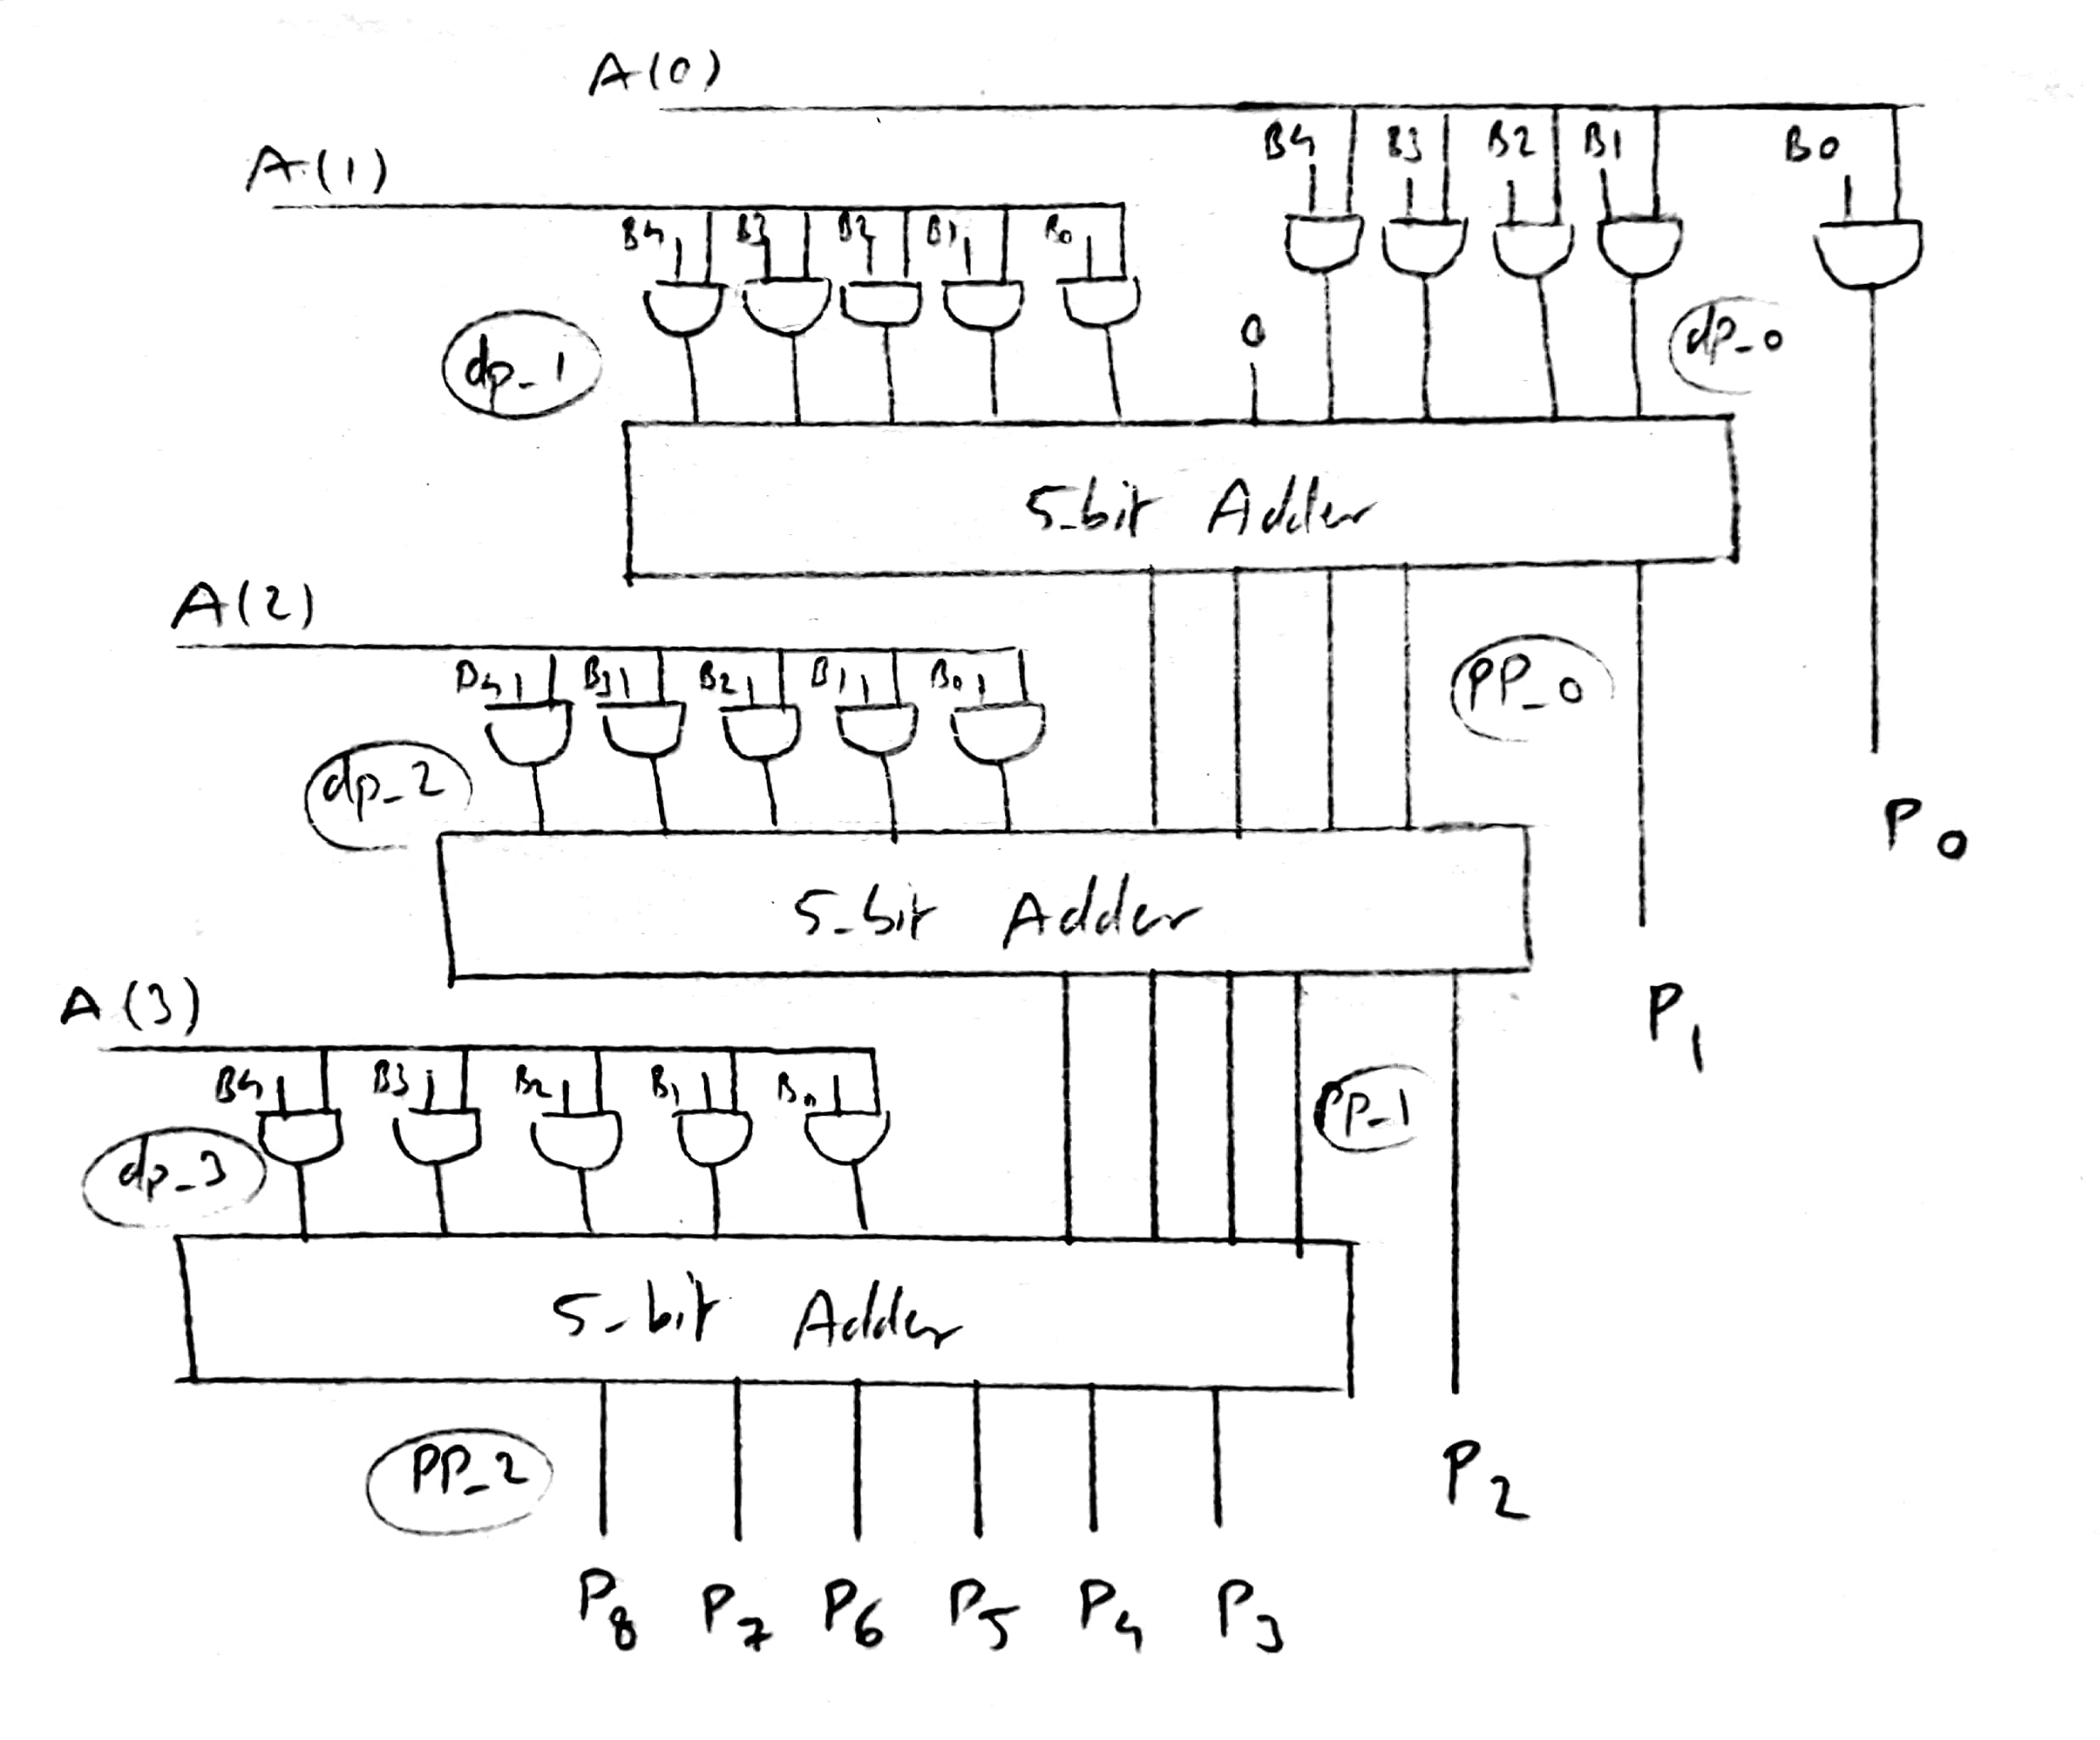 A(0)
B4 B3 B2 B1 B0
A(1)
B4 B3 B2 B1 B0
0
dp_0
dp_1
5-bit Adder
A(2)
B4 B3 B2 B1 B0
PP_0
dp_2
P0
5-bit Adder
A(3)
P1
B4 B3 B2 B1 B0
PP_1
dp_3
5-bit Adder
PP_2
P2
P8 P7 P6 P5 P4 P3